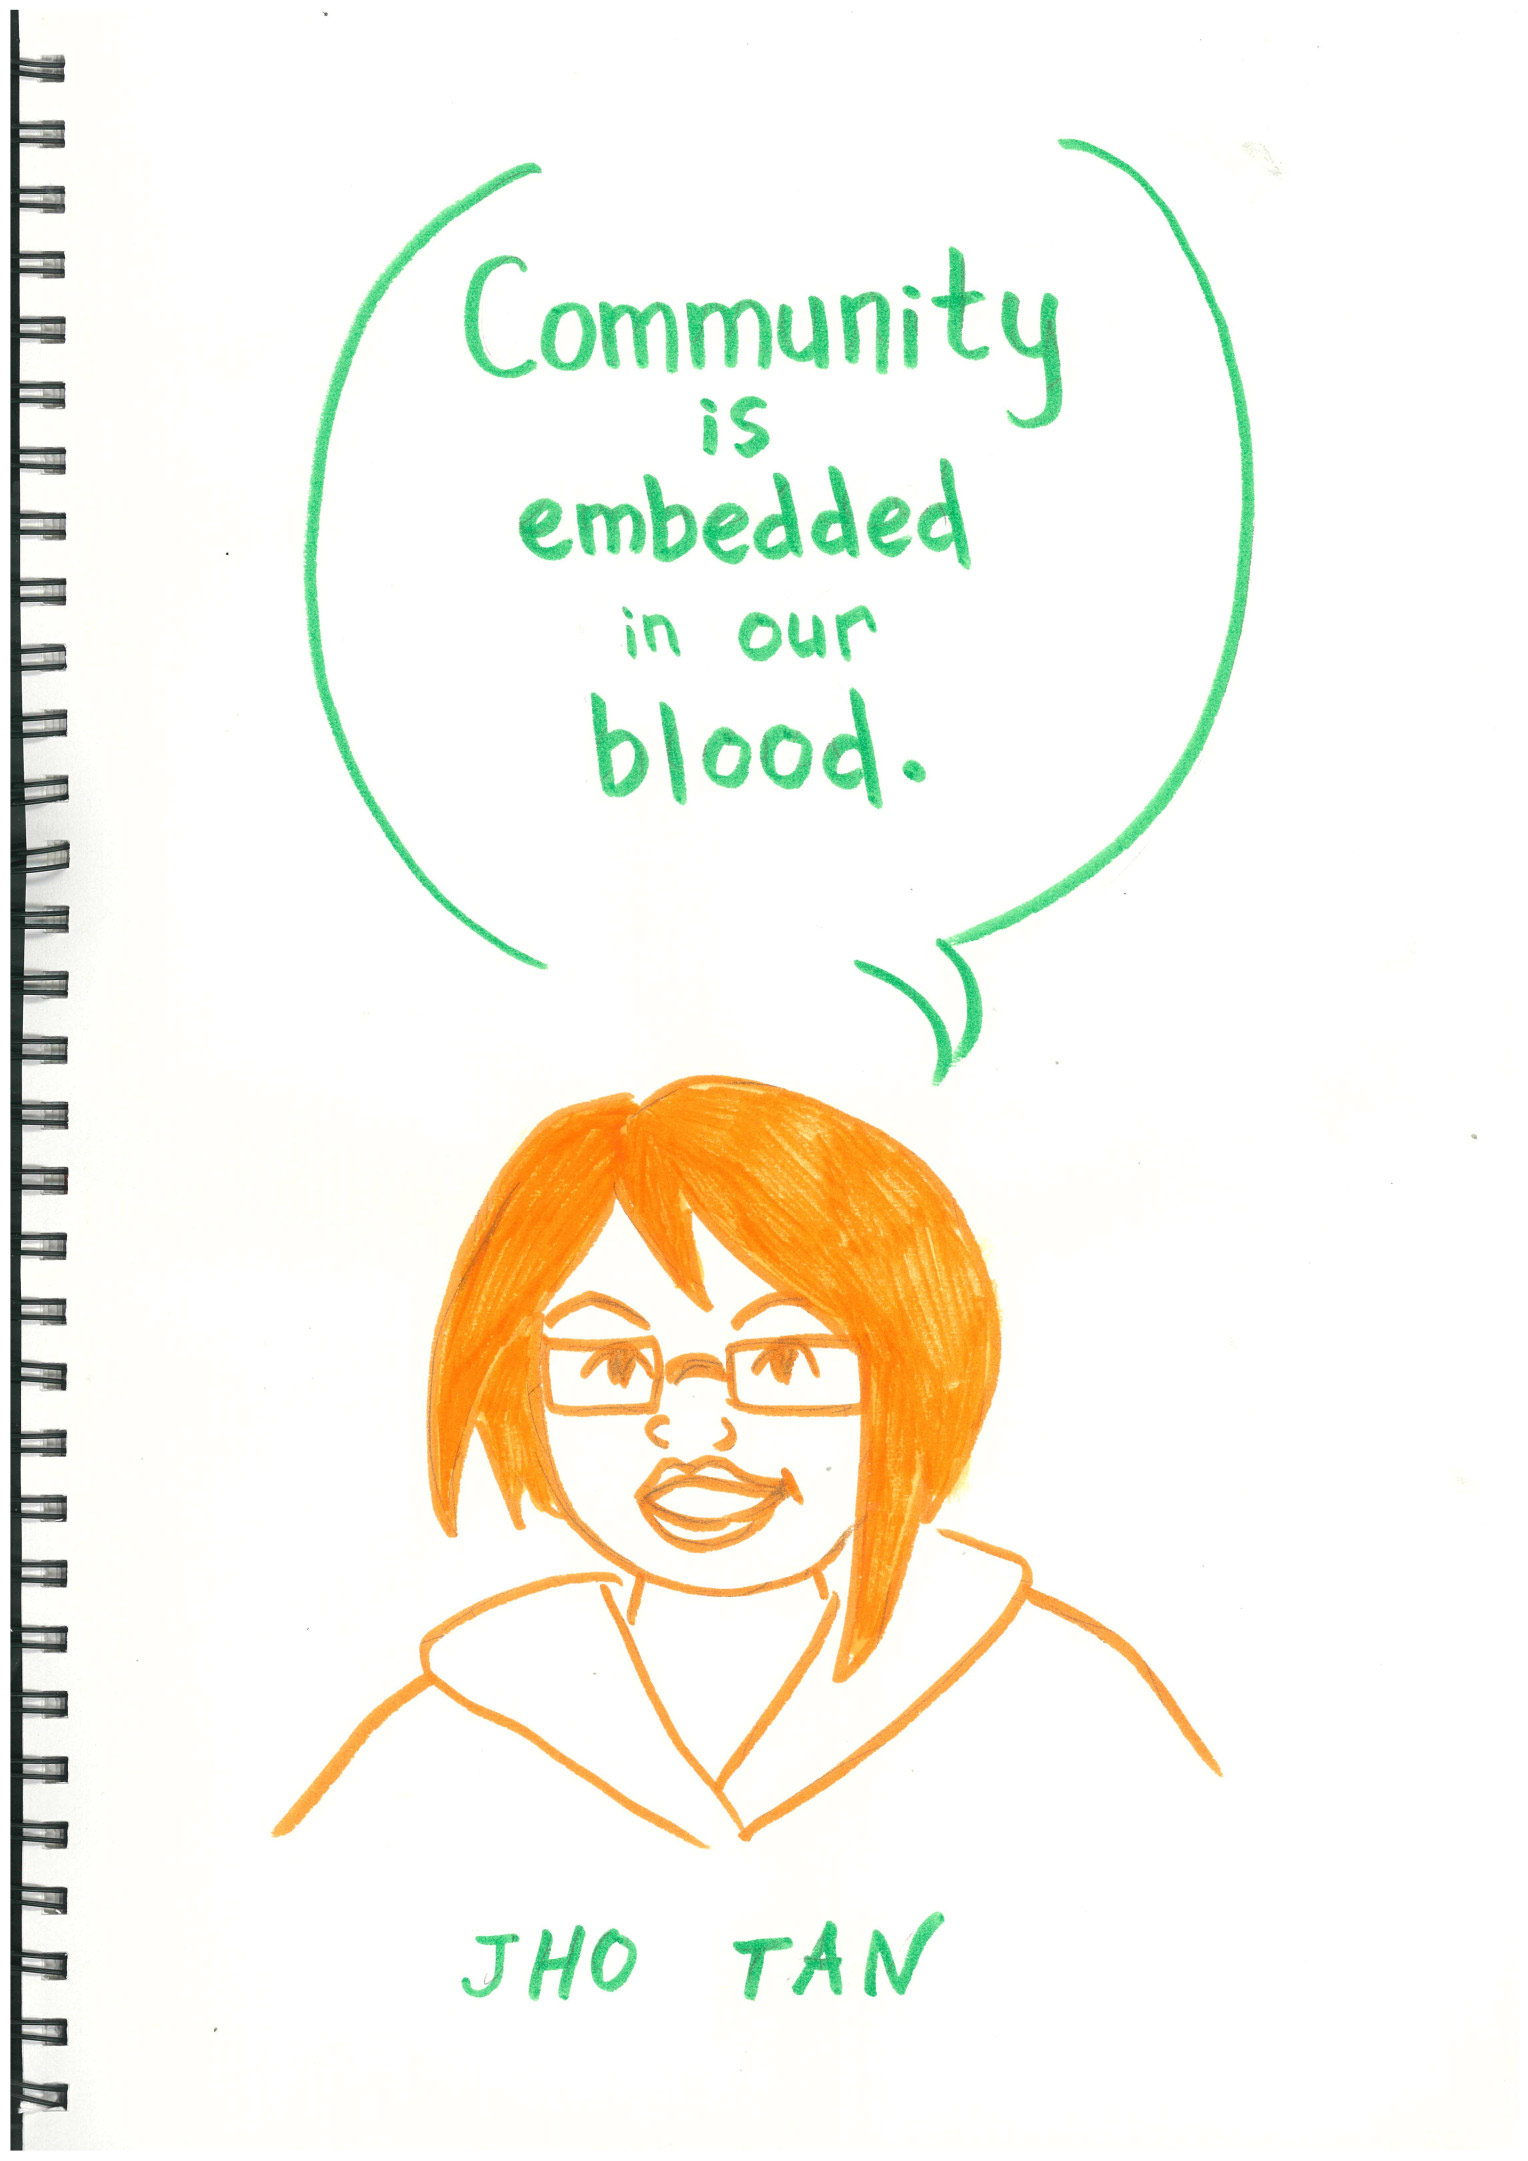 Community
is
embedded
in our
blood.
JHO TAN